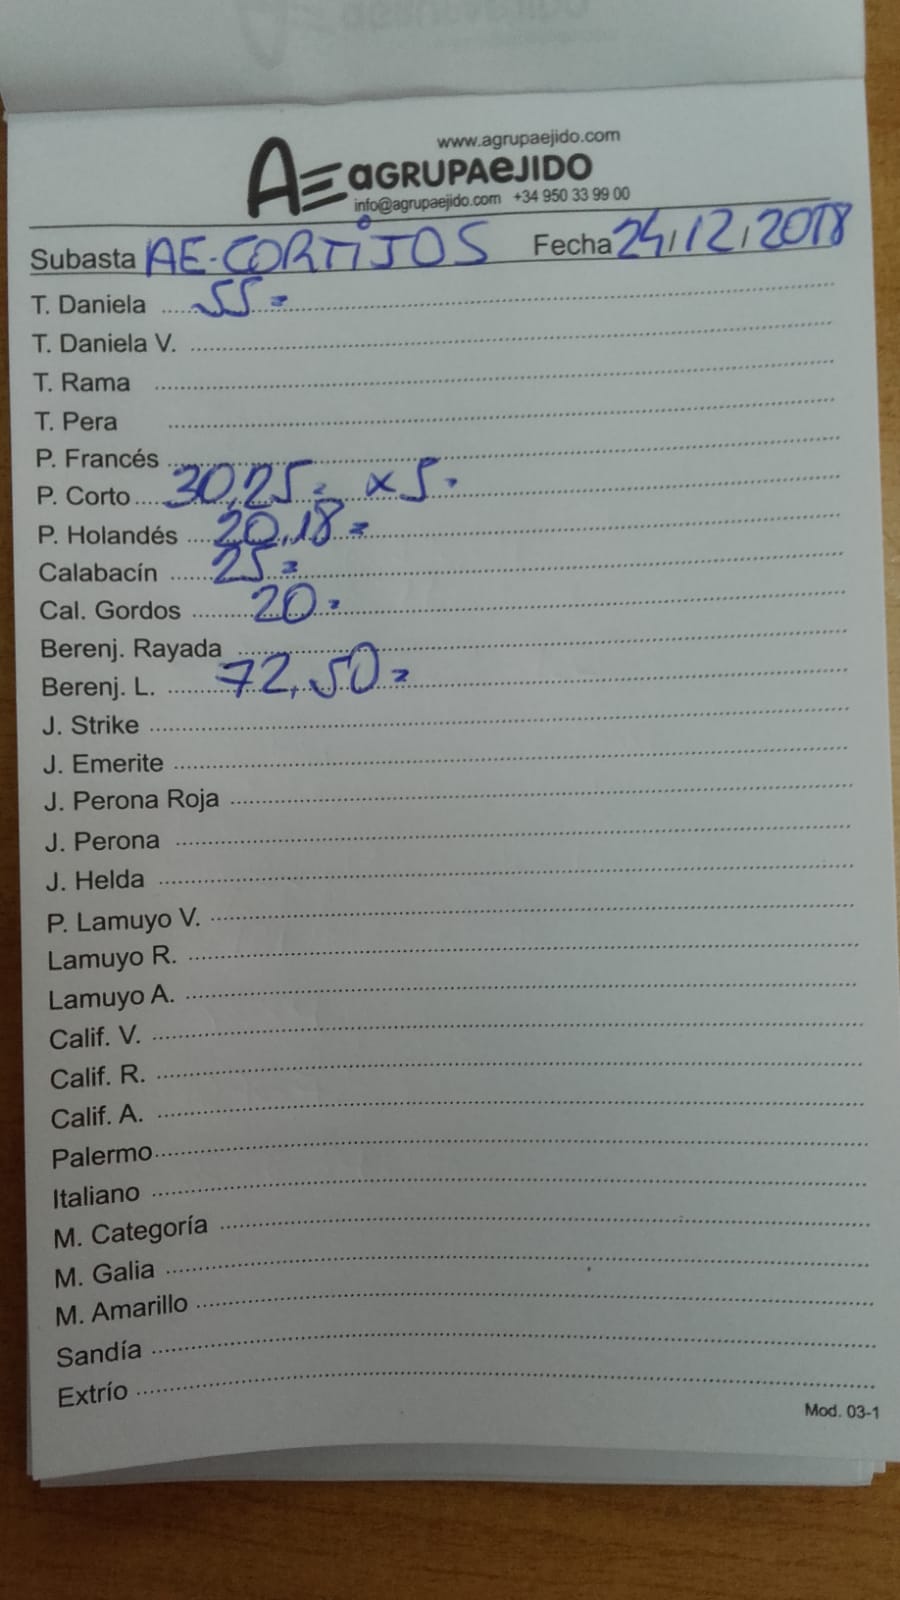 www.agrupaejido.com
AE aGRUPAeJIDO
info@agrupaejido.com +34 950 33 99 00
Subasta AE-CORTIJOS Fecha 24/12/2018
T. Daniela 55=
T. Daniela V.
T. Rama
T. Pera
P. Francés
P. Corto 30,25= x5-
P. Holandés 20,18=
Calabacín 25=
Cal. Gordos 20=
Berenj. Rayada
Berenj. L. 72,50=
J. Strike
J. Emerite
J. Perona Roja
J. Perona
J. Helda
P. Lamuyo V.
Lamuyo R.
Lamuyo A.
Calif. V.
Calif. R.
Calif. A.
Palermo
Italiano
M. Categoría
M. Galia
M. Amarillo
Sandía
Extrío
Mod. 03-1